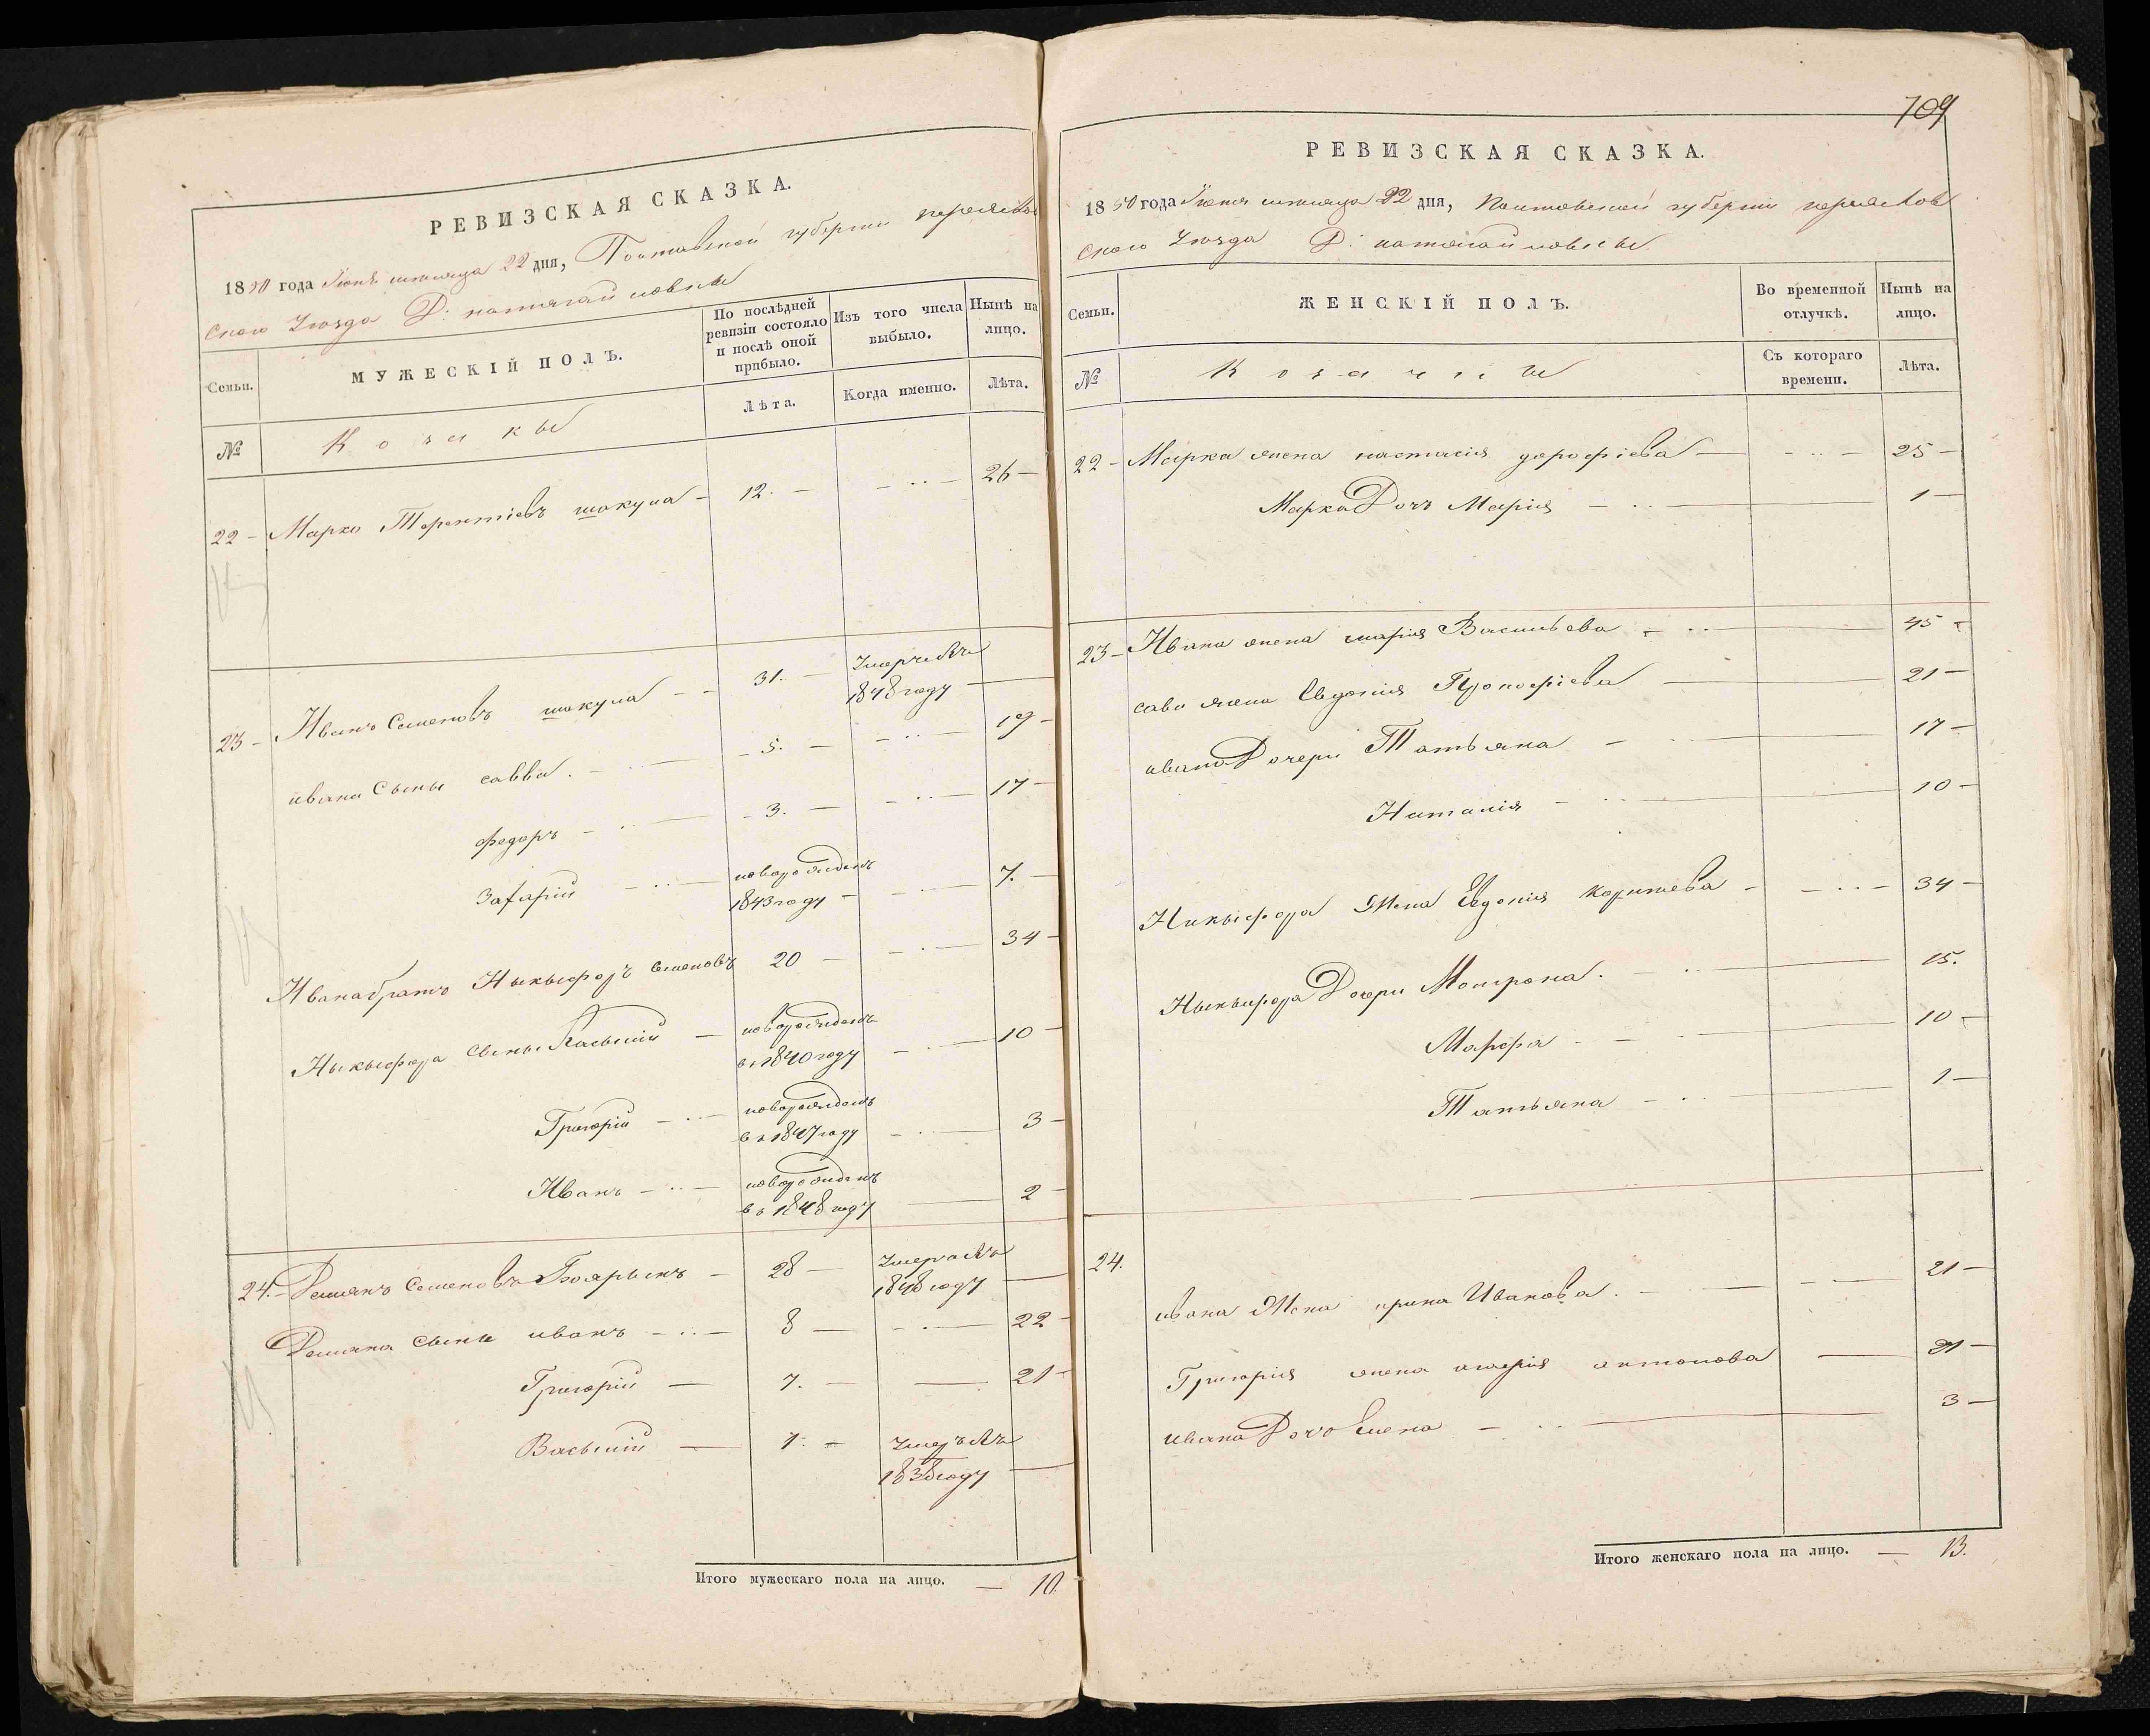 РЕВИЗСКАЯ СКАЗКА.
1850 года Июня месяца 22 дня, Полтавской губернии переяслов
ского Уезда Д:
Семьи.
МУЖЕСКІЙ ПОЛЪ.
По послѣдней ревизіи состояло и послѣ оной прибыло.
Изъ того числа выбыло.
Нынѣ на лицо.
№
Козаки
Лѣта.
Когда именно.
Лѣта.
22 - Марко Терентіевъ шокула - 12. - - ·· - 26 -
23 - Иванъ Семеновъ шокула - - 31. - Умеръ въ 1848 году -
ивана Сыны савва. - 5. - - ·· - 19 -
федоръ - ·· - 3. - - ·· - 17 -
Захарій - ·· - новорожденъ 1843 году - - · - 7. -
Ивана братъ Ныкыфоръ Семеновъ 20 - - · - 34 -
Ныкыфора Сыны Васылій - новорожденъ въ 1840 году - · - 10 -
Григорій - ·· - новорожденъ въ 1847 году - ·· - 3 -
Иванъ - ·· - новорожденъ въ 1848 году - 2
24. - Демянъ Семеновъ Боярынъ - 28 - Умеръ въ 1848 году -
Демяна Сыны иванъ - ·· - 8 - - · - 22 -
Григорій - 7. - - 21 -
Васылій - 1. - Умеръ въ 1838 году -
Итого мужескаго пола на лицо. - 10.
709
РЕВИЗСКАЯ СКАЗКА.
1850 года Июня месяца 22 дня, Полтавской губернии переяслов
ского Уезда Д:
Семьи.
ЖЕНСКІЙ ПОЛЪ.
Во временной отлучкѣ.
Нынѣ на лицо.
№
Козачки
Съ котораго времени.
Лѣта.
22 - Марка жена настасія дорофіева - - ·· - 25 -
Марка Дочъ Марія - ·· - 1 -
23 - Ивана жена марія Васильева - ·· 45 -
савы жена Евдокія Прокофіева - 21 -
ивана Дочери Татьяна - ·· - 17 -
Наталія - ·· - 10 -
Никыфора Жена Евдокія - - ·· - 34 -
Ныкыфора Дочери Мотрона. - ·· - 15.
Марфа - - - 10 -
Татьяна - ·· - 1 -
24.
ивана Жена ирина Иванова. - - 21 -
Григорія жена марія антонова - 21 -
ивана Дочъ Елена - ·· - 3 -
Итого женскаго пола на лицо. - 13.